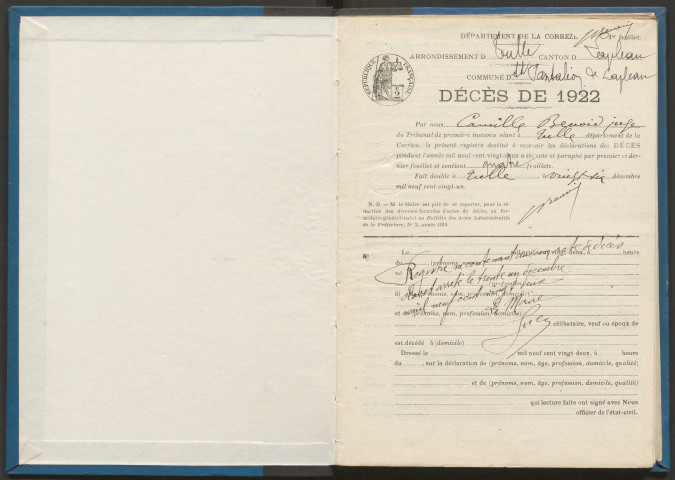 DÉPARTEMENT DE LA CORRÈZE
ARRONDISSEMENT D Tulle CANTON D Lapleau
COMMUNE D St Pantaléon de Lapleau
RÉPUBLIQUE FRANÇAISE
DÉCÈS DE 1922
Par nous, Camille Benoid, juge
du Tribunal de première instance séant à Tulle département de la
Corrèze, le présent registre destiné à recevoir les déclarations des DÉCÈS
pendant l'année mil neuf cent vingt-deux a été coté et paraphé par premier et der-
nier feuillet et contient quatre feuillets.
Fait double à Tulle, le vingt six décembre
mil neuf cent vingt-un.
N. B. — M. le Maire est prié de se reporter, pour la ré-
daction des diverses formules d'actes de décès, au For-
mulaire général inséré au Bulletin des Actes Administratifs
de la Préfecture, N° 2, année 1913.
N° Le deux, à heure
du (prénoms, nom
né
fil (prénoms, nom, domicile)
et de (prénoms, nom, profession, domicile)
célibataire, veuf ou époux de
est décédé à (domicile)
Dressé le mil neuf cent vingt-deux, à heure
du , sur la déclaration de (prénoms, nom, âge, profession, domicile, qualité)
et de (prénoms, nom, âge, profession, domicile, qualité)
qui lecture faite ont signé avec Nous
officier de l'état-civil.
Registre ne contenant acte de décès
arrêté le trente un décembre
mil neuf cent vingt deux
Le Maire